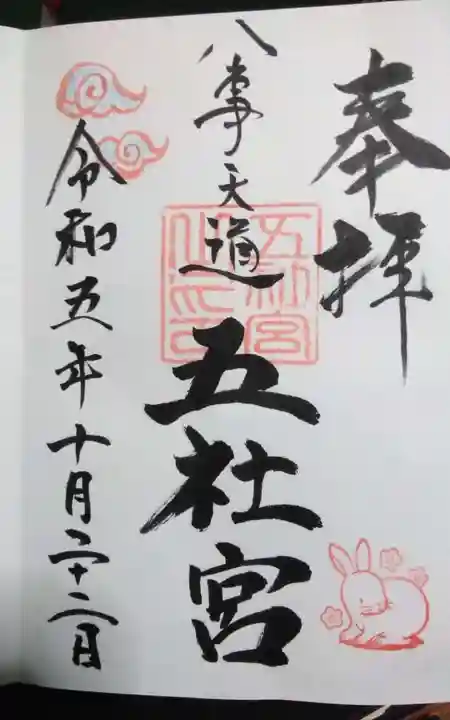 奉拝
八事天道
五社宮
令和五年十月二十二日
五社宮